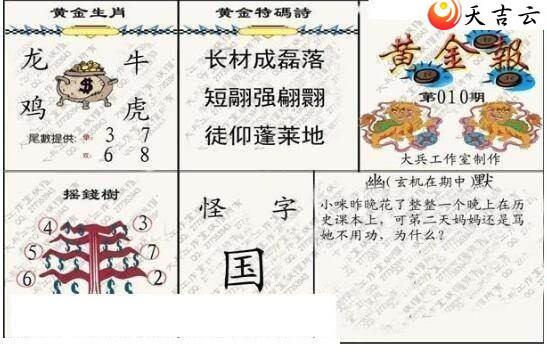 天吉云
黄金生肖
龙 牛
鸡 虎
尾數提供: 单: 3 7
双: 6 8
黄金特碼詩
长材成磊落
短翮强翩翾
徒仰蓬莱地
黄金報
第010期
大兵工作室制作
摇錢樹
4 3
5 7
6 2
怪 字
国
幽(玄机在期中)默
小咪昨晚花了整整一个晚上在历
史课本上，可第二天妈妈还是骂
她不用功、为什么?